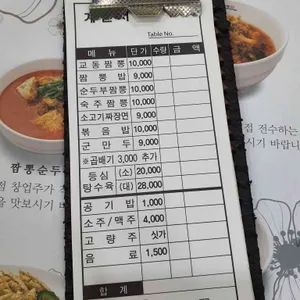 계산서
Table No.
메 뉴 단가 수량 금 액
교동짬뽕 10,000
짬뽕밥 9,000
순두부짬뽕 10,000
숙주짬뽕 10,000
소고기짜장면 9,000
볶음밥 10,000
군만두 9,000
※곱빼기 3,000 추가
등심 (소) 20,000
탕수육 (대) 28,000
공기밥 1,000
소주/맥주 4,000
고량주 싯가
음료 1,500
합 계
짬뽕순두
창업주가
을 맛보시기 바
접 전수하는
시기 바랍니다